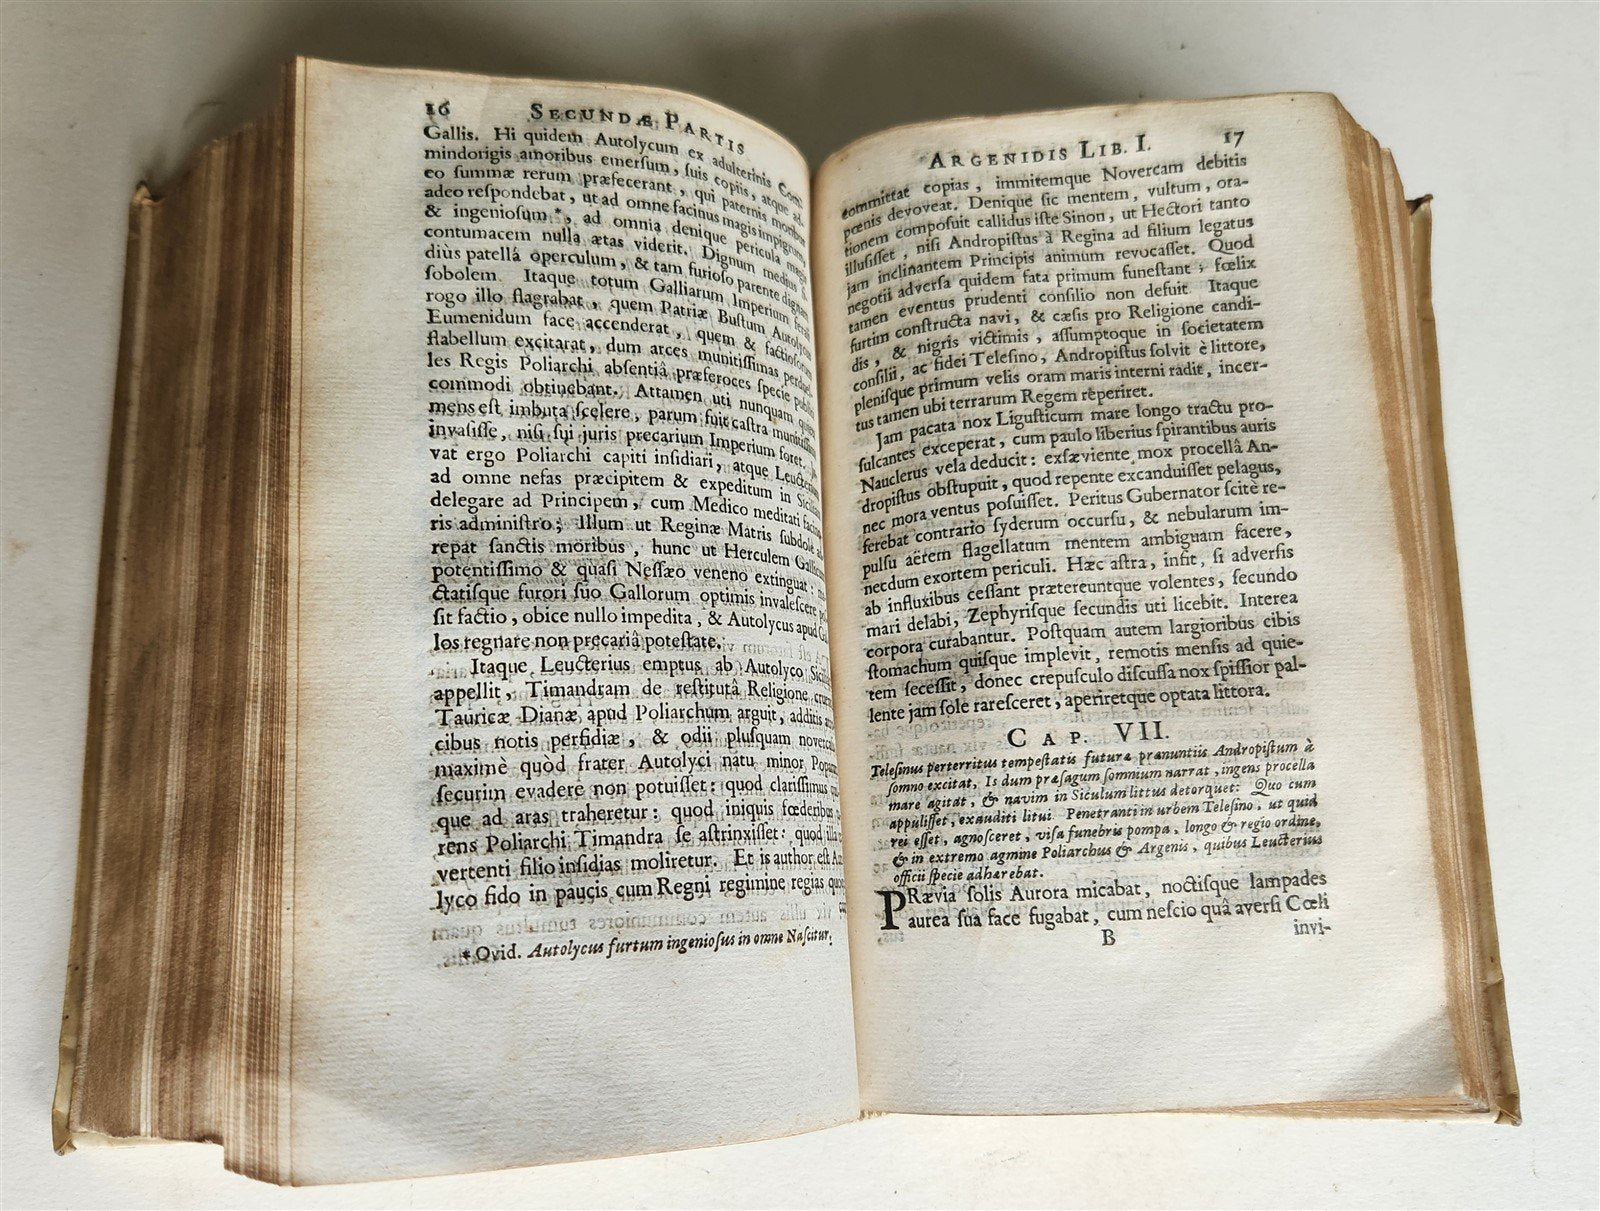 16 SECUNDÆ PARTIS
Gallis. Hi quidem Autolycum ex adulterinis Com-
mindorigis amoribus emersum, suis copiis, atque ad-
eo summæ rerum præfecerant, qui paternis moribus
adeo respondebat, ut ad omne facinus magis impigrum,
& ingeniosum *, ad omnia denique pericula magis
contumacem nulla ætas viderit. Dignum medius fi-
diùs patellâ operculum, & tam furioso parente dignam
sobolem. Itaque totum Galliarum Imperium ferali
rogo illo flagrabat, quem Patriæ Bustum Autolycus
Eumenidum face accenderat, quem & factiosorum
flabellum excitarat, dum arces munitissimas perduel-
les Regis Poliarchi absentiâ præferoces specie publici
commodi obtinebant. Attamen uti nunquam quieta
mens est imbuta scelere, parum fuit castra munitissima
invasisse, nisi sui juris precarium Imperium foret.
vat ergo Poliarchi capiti insidiari, atque Leucterium
ad omne nefas præcipitem & expeditum in Siciliam
delegare ad Principem, cum Medico meditati facino-
ris administro; Illum ut Reginæ Matris subdole ab-
repat sanctis moribus, hunc ut Herculem Gallicum
potentissimo & quasi Nessæo veneno extinguat:
ctatisque furori suo Gallorum optimis invalescere
sit factio, obice nullo impedita, & Autolycus apud Gal-
los regnare non precariâ potestate.
Itaque Leucterius emptus ab Autolyco Siciliam
appellit, Timandram de restitutâ Religione,
Tauricæ Dianæ, apud Poliarchum arguit, additis
cibus notis perfidiæ, & odii plusquam novercalis
maximè quòd frater Autolyci natu minor
securim evadere non potuisset: quod clarissimus
que ad aras traheretur: quod iniquis fœderibus
rens Poliarchi Timandra se astrinxisset: quod illa
vertenti filio insidias moliretur. Et is author est Auto-
lyco fido in paucis, cum Regni regimine regias quoque
* Ovid. Autolycus furtum ingeniosus in omne Nascitur.
ARGENIDIS LIB. I. 17
committat copias, immitemque Novercam debitis
pœnis devoveat. Denique sic mentem, vultum, ora-
tionem composuit callidus iste Sinon, ut Hectori tanto
illusisset, nisi Andropistus à Regina ad filium legatus
jam inclinantem Principis animum revocasset. Quod
negotii adversa quidem fata primum funestant; fœlix
tamen eventus prudenti consilio non defuit. Itaque
furtim constructa navi, & cæsis pro Religione candi-
dis, & nigris victimis, assumptoque in societatem
consilii, ac fidei Telesino, Andropistus solvit è littore,
plenisque primum velis oram maris interni radit, incer-
tus tamen ubi terrarum Regem reperiret.
Jam pacata nox Ligusticum mare longo tractu pro-
sulcantes exceperat, cum paulo liberius spirantibus auris
Nauclerus vela deducit: exsæviente mox procellâ An-
dropistus obstupuit, quod repente excanduisset pelagus,
nec mora ventus posuisset. Peritus Gubernator scitè re-
ferebat contrario syderum occursu, & nebularum im-
pulsu aërem flagellatum mentem ambiguam facere,
necdum exortem periculi. Hæc astra, infit, si adversis
ab influxibus cessant prætereuntque volentes, secundo
mari delabi, Zephyrisque secundis uti licebit. Interea
corpora curabantur. Postquam autem largioribus cibis
stomachum quisque implevit, remotis mensis ad quie-
tem secessit, donec crepusculo discussa nox spissior pal-
lente jam sole raresceret, aperiretque optata littora.
CAP. VII.
Telesinus perterritus tempestatis futuræ prænuntiis Andropistum à
somno excitat, Is dum præsagum somnium narrat, ingens procella
mare agitat, & navim in Siculum littus detorquet: Quo cum
appulisset, exauditi litui. Penetranti in urbem Telesino, ut quid
rei esset, agnosceret, visa funebris pompa, longo & regio ordine,
& in extremo agmine Poliarchus & Argenis, quibus Leucterius
officii specie adhærebat.
PRævia solis Aurora micabat, noctisque lampades
aurea sua face fugabat, cum nescio quâ aversi Cœli
B invi-